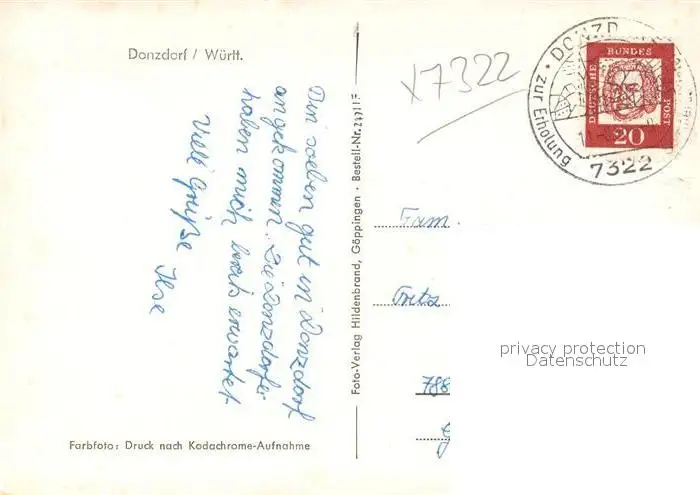 Donzdorf / Württ.
Bin soeben gut in Donzdorf
angekommen. Die Donzdorfer
haben mich bereits erwartet
Viele Grüße Ilse
Farbfoto: Druck nach Kodachrome-Aufnahme
Foto-Verlag Hildenbrand, Göppingen • Bestell-Nr. 2471 F
x7322
DONZD
zur Erholung
7322
DEUTSCHE BUNDES POST
20
Fam.
Fritz
788
privacy protection
Datenschutz